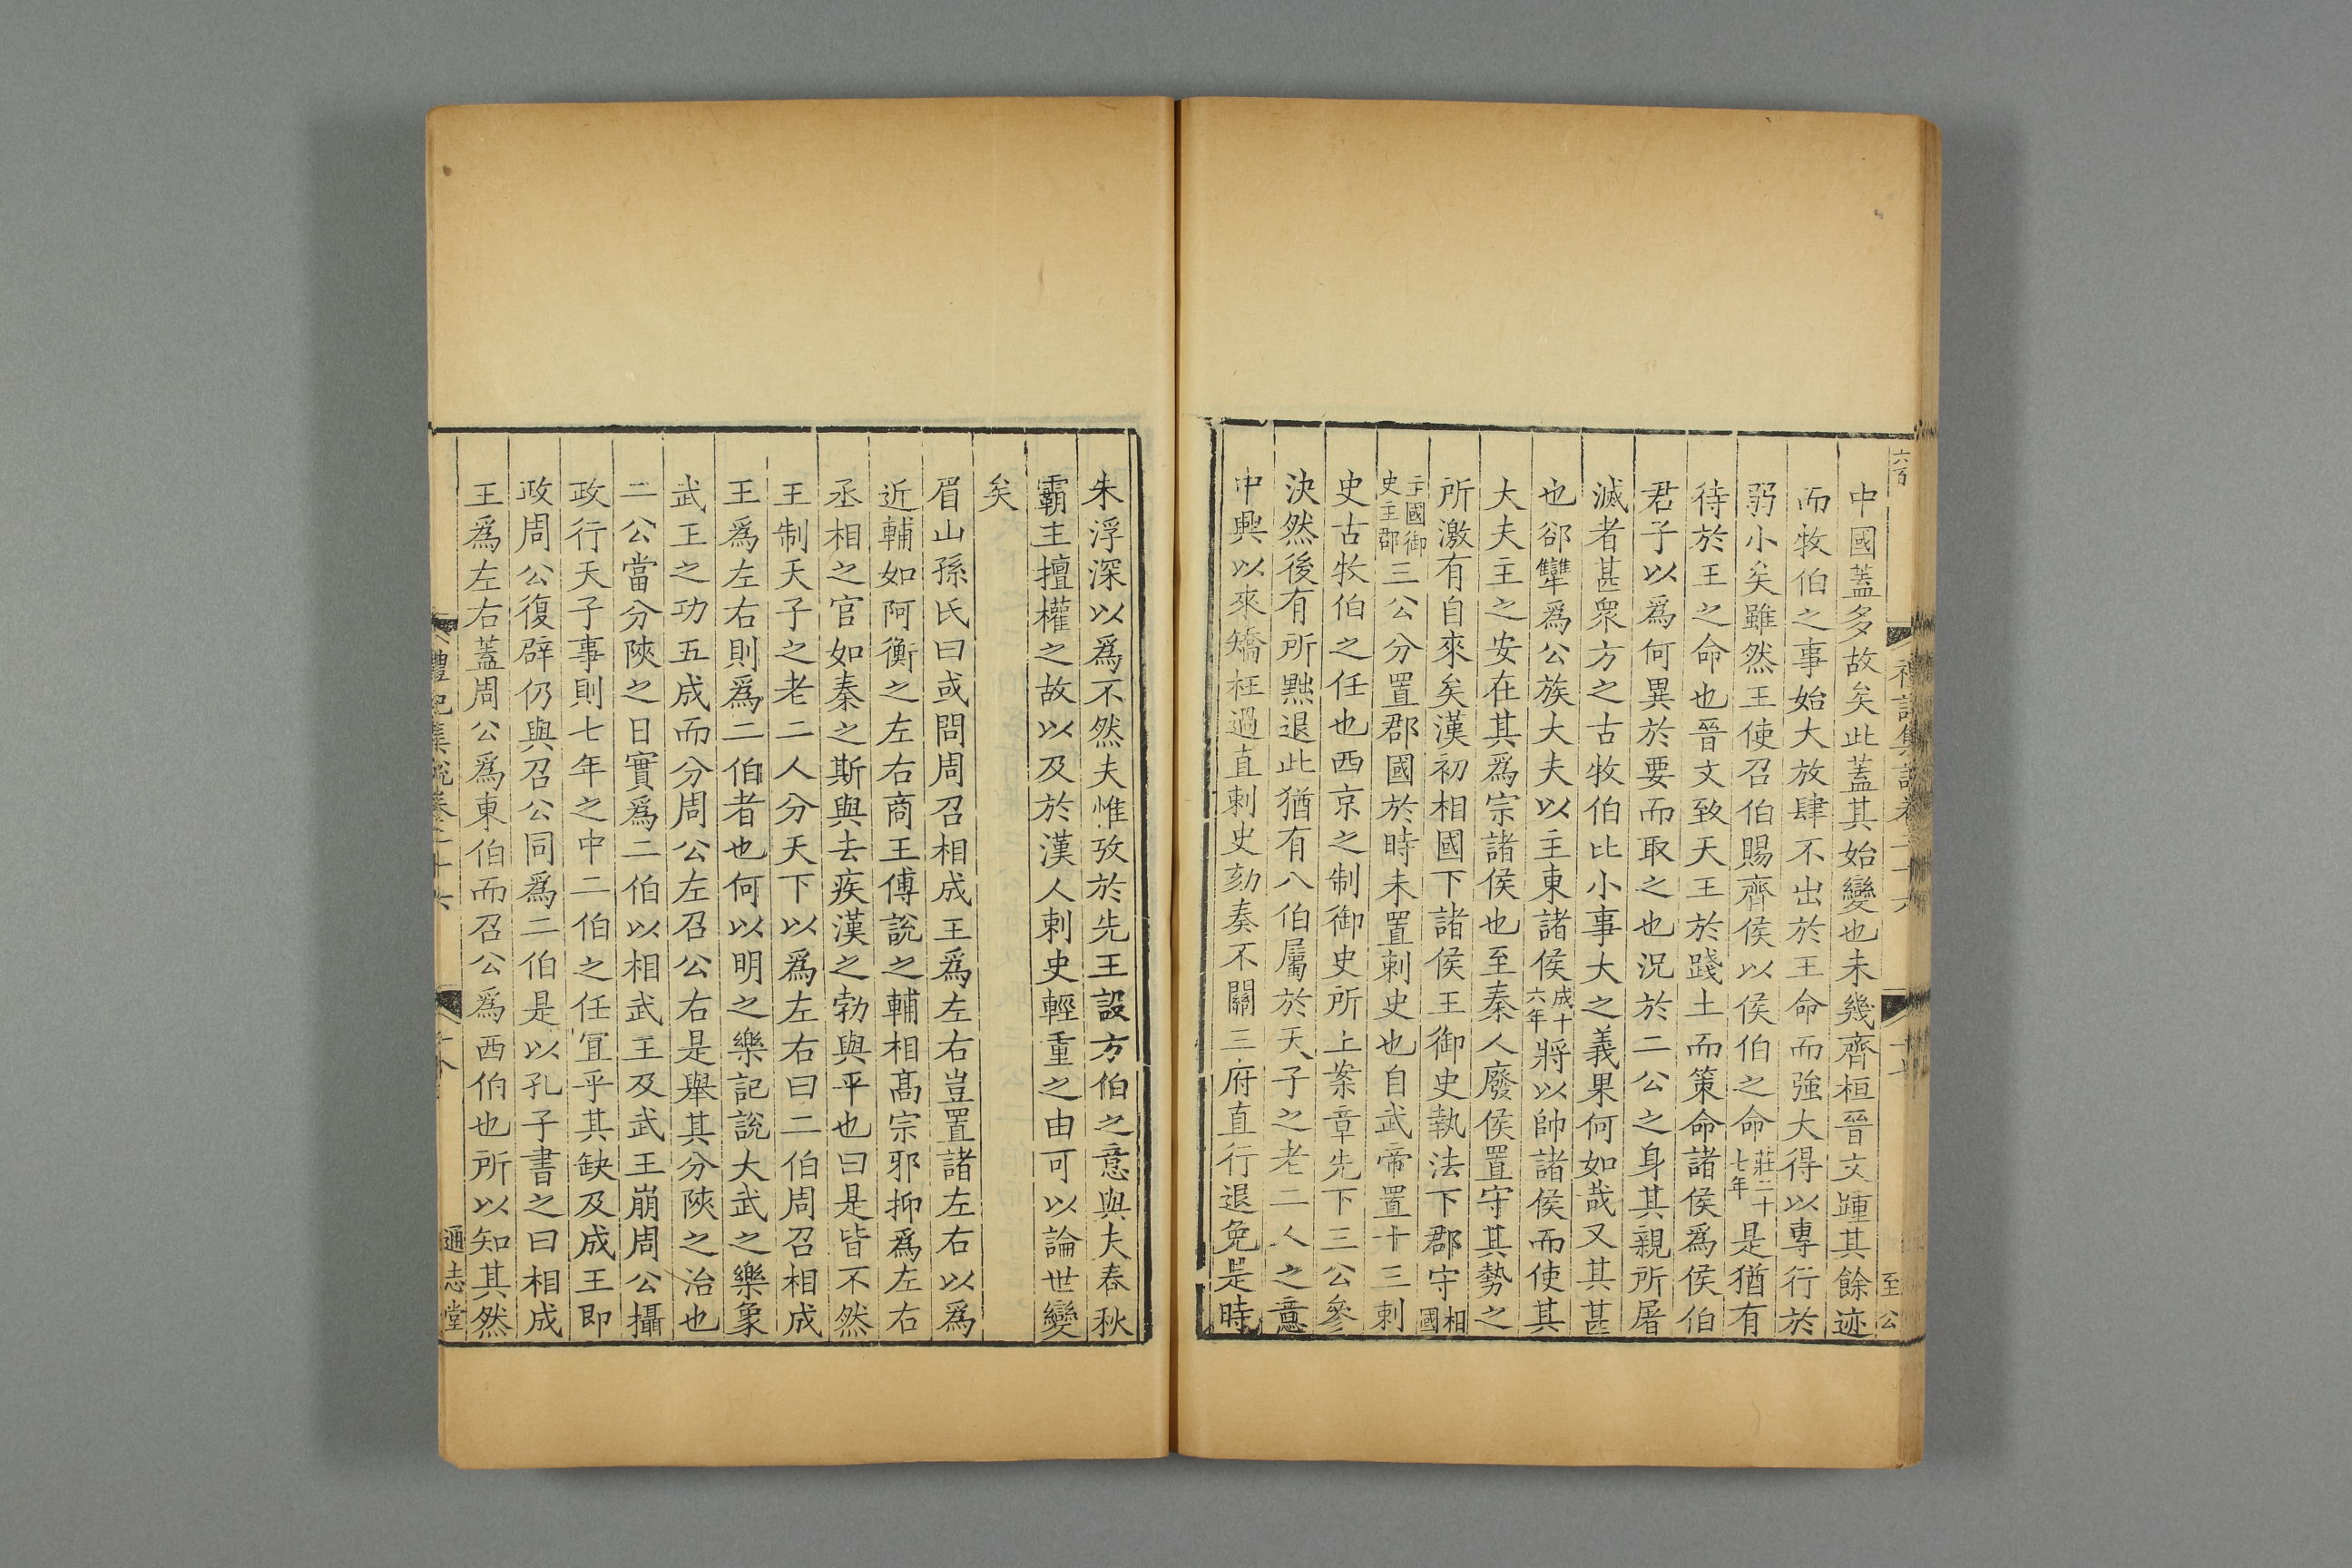 中國蓋多故矣此蓋其始變也未幾齊桓晉文踵其餘迹
而牧伯之事始大放肆不出於王命而強大得以專行於
弱小矣雖然王使召伯賜齊侯以侯伯之命莊二十七年是猶有
待於王之命也晉文致天王於踐土而策命諸侯爲侯伯
君子以爲何異於要而取之也況於二公之身其親所屠
滅者甚衆方之古牧伯比小事大之義果何如哉又其甚
也郤犫爲公族大夫以主東諸侯成十六年將以帥諸侯而使其
大夫主之安在其爲宗諸侯也至秦人廢侯置守其勢之
所激有自來矣漢初相國下諸侯王御史執法下郡守相國
主國御史主郡三公分置郡國於時未置刺史也自武帝置十三刺
史古牧伯之任也西京之制御史所上案章先下三公參
決然後有所黜退此猶有八伯屬於天子之老二人之意
中興以來矯枉過直刺史劾奏不關三府直行退免是時
朱浮深以爲不然夫惟攷於先王設方伯之意與夫春秋
霸主擅權之故以及於漢人刺史輕重之由可以論世變
矣
眉山孫氏曰或問周召相成王爲左右豈置諸左右以爲
近輔如阿衡之左右商王傅說之輔相髙宗邪抑爲左右
丞相之官如秦之斯與去疾漢之勃與平也曰是皆不然
王制天子之老二人分天下以爲左右曰二伯周召相成
王爲左右則爲二伯者也何以明之樂記說大武之樂象
武王之功五成而分周公左召公右是舉其分陝之治也
二公當分陝之日實爲二伯以相武王及武王崩周公攝
政行天子事則七年之中二伯之任宜乎其缺及成王即
政周公復辟仍與召公同爲二伯是以孔子書之曰相成
王爲左右蓋周公爲東伯而召公爲西伯也所以知其然
禮記集說卷二十六
通志堂